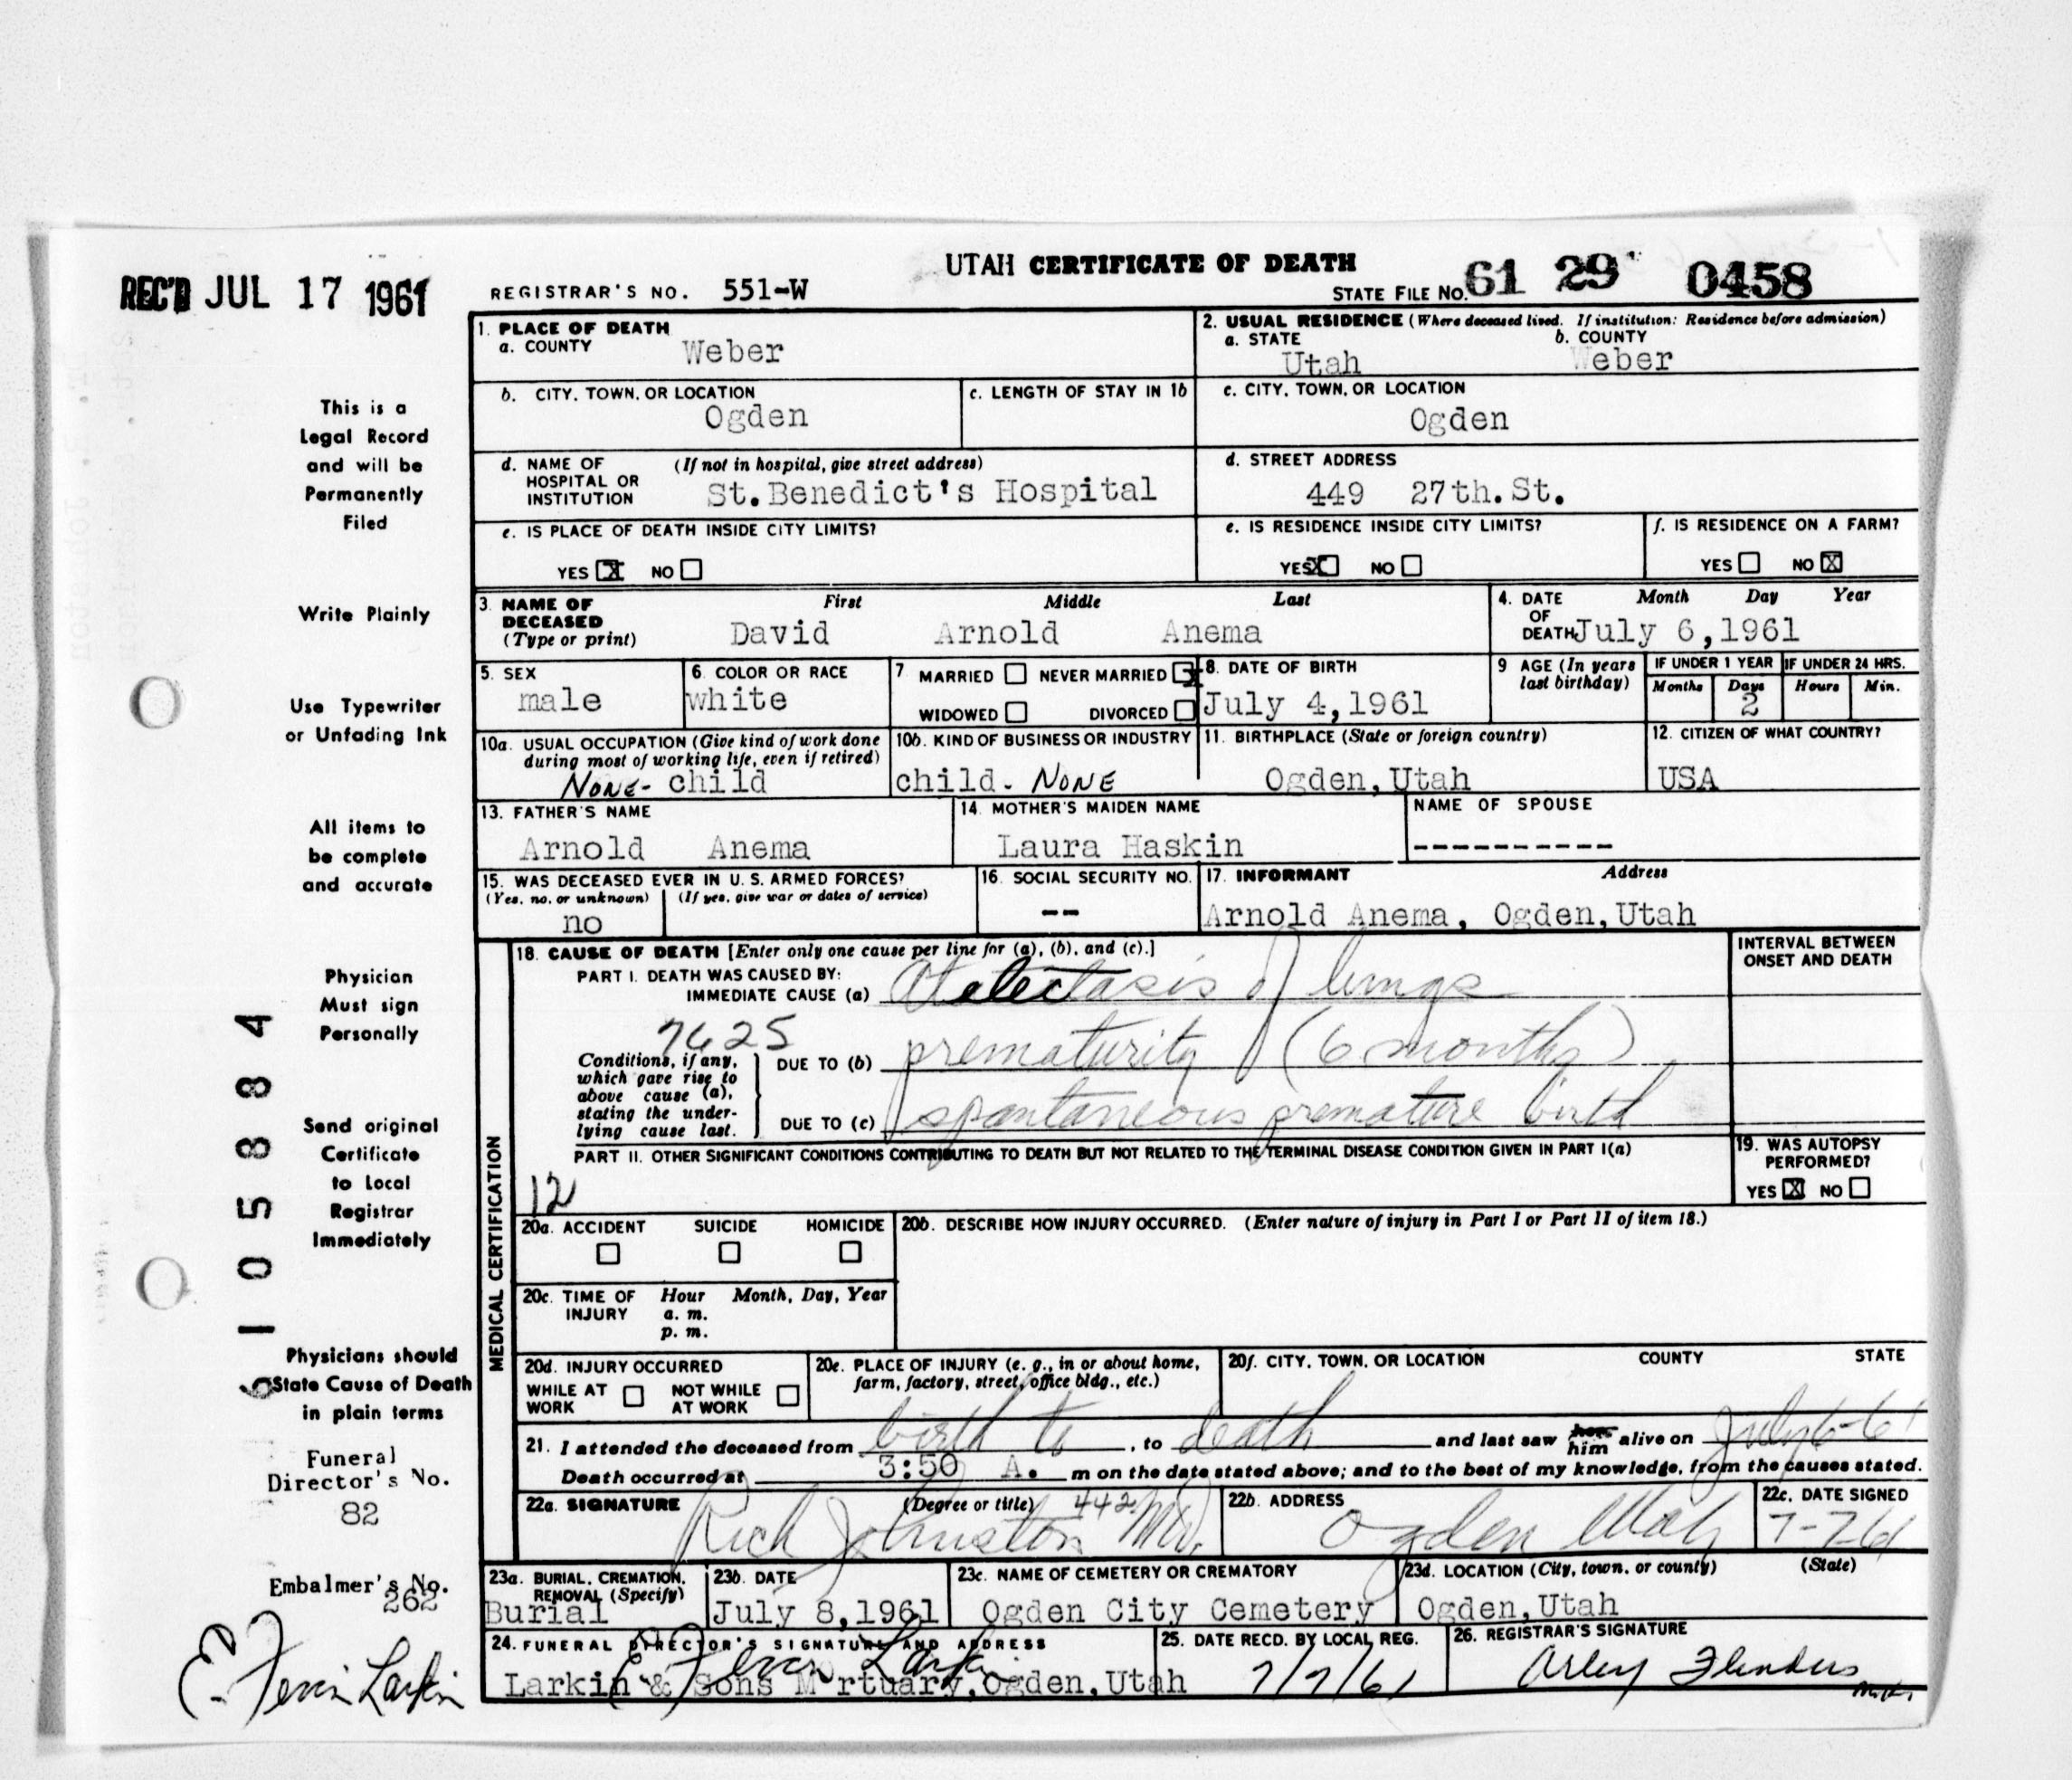 UTAH CERTIFICATE OF DEATH
REC'D JUL 17 1961
REGISTRAR'S NO. 551-W
STATE FILE No. 61 29 0458
This is a
Legal Record
and will be
Permanently
Filed
Write Plainly
Use Typewriter
or Unfading Ink
All items to
be complete
and accurate
Physician
Must sign
Personally
Send original
Certificate
to Local
Registrar
Immediately
Physicians should
State Cause of Death
in plain terms
6105884
Funeral
Director's No.
82
Embalmer's No.
262
E. Ferrin Larkin
1. PLACE OF DEATH
a. COUNTY Weber
2. USUAL RESIDENCE (Where deceased lived. If institution: Residence before admission)
a. STATE Utah b. COUNTY Weber
b. CITY, TOWN, OR LOCATION Ogden
c. LENGTH OF STAY IN 1b
c. CITY, TOWN, OR LOCATION
Ogden
d. NAME OF HOSPITAL OR INSTITUTION (If not in hospital, give street address)
St.Benedict's Hospital
d. STREET ADDRESS
449 27th.St.
e. IS PLACE OF DEATH INSIDE CITY LIMITS?
YES X NO
e. IS RESIDENCE INSIDE CITY LIMITS?
YES X NO
f. IS RESIDENCE ON A FARM?
YES NO X
3. NAME OF DECEASED (Type or print)
First Middle Last
David Arnold Anema
4. DATE OF DEATH Month Day Year
July 6,1961
5. SEX
male
6. COLOR OR RACE
white
7 MARRIED NEVER MARRIED X
WIDOWED DIVORCED
8. DATE OF BIRTH
July 4,1961
9 AGE (In years last birthday)
IF UNDER 1 YEAR IF UNDER 24 HRS.
Months Days Hours Min.
2
10a. USUAL OCCUPATION (Give kind of work done during most of working life, even if retired)
NONE- child
10b. KIND OF BUSINESS OR INDUSTRY
child. NONE
11. BIRTHPLACE (State or foreign country)
Ogden,Utah
12. CITIZEN OF WHAT COUNTRY?
USA
13. FATHER'S NAME
Arnold Anema
14. MOTHER'S MAIDEN NAME
Laura Haskin
NAME OF SPOUSE
----------
15. WAS DECEASED EVER IN U. S. ARMED FORCES?
(Yes, no, or unknown) (If yes, give war or dates of service)
no
16. SOCIAL SECURITY NO.
--
17. INFORMANT Address
Arnold Anema, Ogden,Utah
MEDICAL CERTIFICATION
18. CAUSE OF DEATH [Enter only one cause per line for (a), (b), and (c).]
INTERVAL BETWEEN ONSET AND DEATH
PART I. DEATH WAS CAUSED BY:
IMMEDIATE CAUSE (a) Atelectasis of lungs
7625
Conditions, if any, which gave rise to above cause (a), stating the underlying cause last.
DUE TO (b) prematurity (6 months)
DUE TO (c) spontaneous premature birth
PART II. OTHER SIGNIFICANT CONDITIONS CONTRIBUTING TO DEATH BUT NOT RELATED TO THE TERMINAL DISEASE CONDITION GIVEN IN PART I(a)
12
19. WAS AUTOPSY PERFORMED?
YES X NO
20a. ACCIDENT SUICIDE HOMICIDE
20b. DESCRIBE HOW INJURY OCCURRED. (Enter nature of injury in Part I or Part II of item 18.)
20c. TIME OF INJURY Hour Month, Day, Year
a. m.
p. m.
20d. INJURY OCCURRED
WHILE AT WORK NOT WHILE AT WORK
20e. PLACE OF INJURY (e. g., in or about home, farm, factory, street, office bldg., etc.)
20f. CITY, TOWN, OR LOCATION COUNTY STATE
21. I attended the deceased from birth to, to death and last saw her him alive on July 6-61
Death occurred at 3:50 A. m on the date stated above; and to the best of my knowledge, from the causes stated.
22a. SIGNATURE (Degree or title) 442
Rich Johnston MD.
22b. ADDRESS
Ogden Utah
22c. DATE SIGNED
7-7-61
23a. BURIAL, CREMATION, REMOVAL (Specify)
Burial
23b. DATE
July 8,1961
23c. NAME OF CEMETERY OR CREMATORY
Ogden City Cemetery
23d. LOCATION (City, town, or county) (State)
Ogden,Utah
24. FUNERAL DIRECTOR'S SIGNATURE AND ADDRESS
E. Ferrin Larkin
Larkin & Sons Mortuary,Ogden,Utah
25. DATE RECD. BY LOCAL REG.
7/7/61
26. REGISTRAR'S SIGNATURE
Arley Flinders